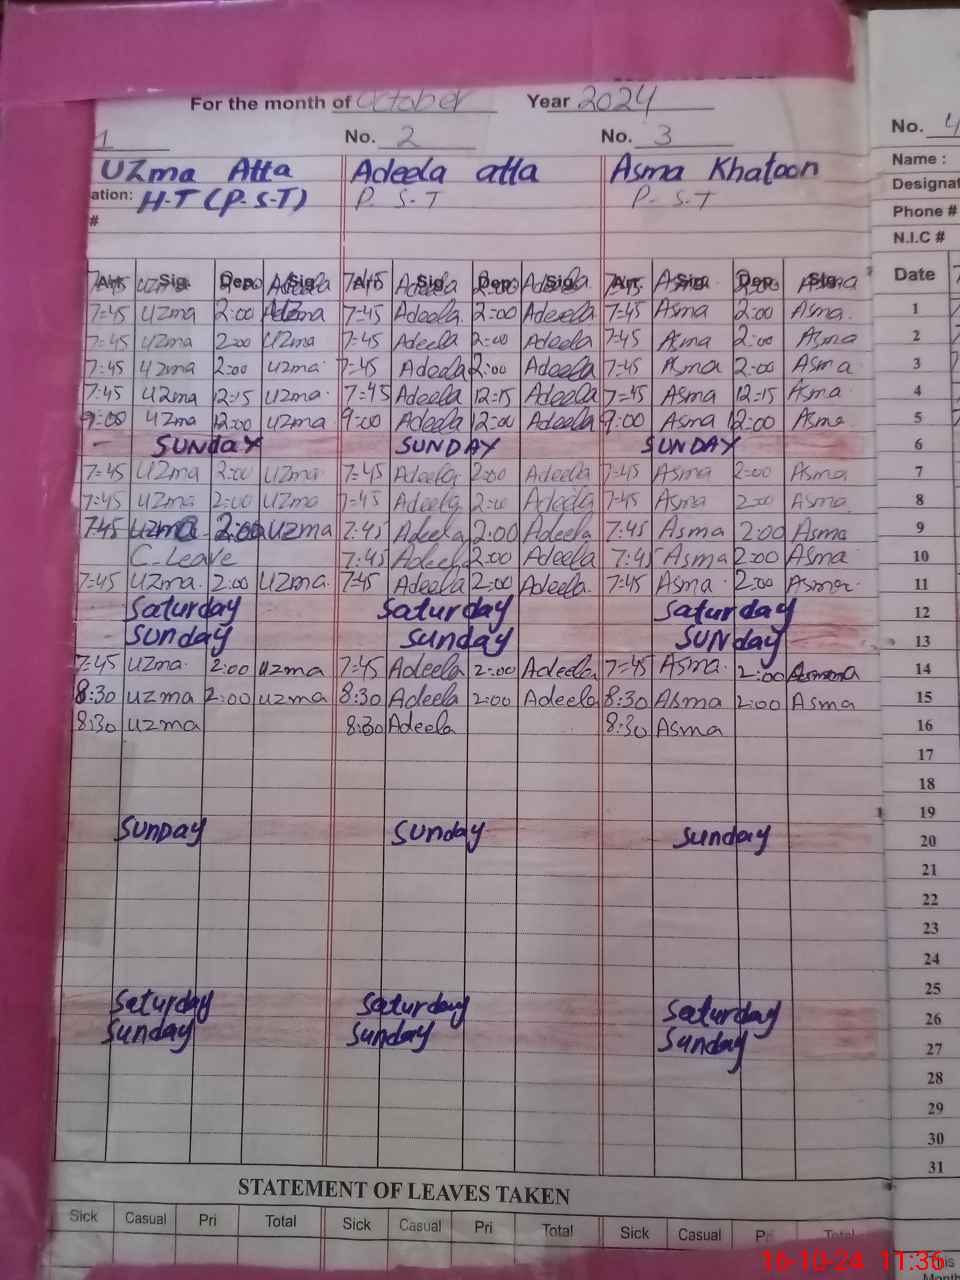 For the month of October Year 2024
1 No. 2 No. 3 No. 4
Uzma Atta Adeela atta Asma Khatoon Name :
ation: H-T (P.S-T) P. S-T P. S-T Designat
# Phone #
N.I.C #
7:45 Sig. Dep. Adeela Sig. 7:45 Arr. Adeela Sig. Dep. Adeela Sig. 7:45 Arr. Asma Sig. Dep. Asma Sig. Date
7:45 Uzma 2:00 Uzma 7:45 Adeela 2:00 Adeela 7:45 Asma 2:00 Asma. 1
7:45 Uzma 2:00 Uzma 7:45 Adeela 2:00 Adeela 7:45 Asma 2:00 Asma 2
7:45 Uzma 2:00 Uzma 7:45 Adeela 2:00 Adeela 7:45 Asma 2:00 Asma 3
7:45 Uzma 12:15 Uzma 7:45 Adeela 12:15 Adeela 7:45 Asma 12:15 Asma 4
9:00 Uzma 12:00 Uzma 9:00 Adeela 12:00 Adeela 9:00 Asma 12:00 Asma 5
SUNDAY SUNDAY SUNDAY 6
7:45 Uzma 2:00 Uzma 7:45 Adeela 2:00 Adeela 7:45 Asma 2:00 Asma 7
7:45 Uzma 2:00 Uzma 7:45 Adeela 2:00 Adeela 7:45 Asma 2:00 Asma 8
7:45 Uzma 2:00 Uzma 7:45 Adeela 2:00 Adeela 7:45 Asma 2:00 Asma 9
C-Leave 7:45 Adeela 2:00 Adeela 7:45 Asma 2:00 Asma 10
7:45 Uzma. 2:00 Uzma. 7:45 Adeela 2:00 Adeela. 7:45 Asma 2:00 Asma 11
Saturday Saturday Saturday 12
Sunday Sunday SUNday 13
7:45 Uzma. 2:00 Uzma 7:45 Adeela 2:00 Adeela 7:45 Asma. 2:00 14
8:30 Uzma 2:00 Uzma 8:30 Adeela 2:00 Adeela 8:30 Asma 2:00 Asma 15
8:30 Uzma 8:30 Adeela 8:30 Asma 16
17
18
19
Sunday Sunday Sunday 20
21
22
23
24
25
Saturday Saturday Saturday 26
Sunday Sunday Sunday 27
28
29
30
31
STATEMENT OF LEAVES TAKEN
Sick Casual Pri Total Sick Casual Pri Total Sick Casual Pri Total
16-10-24 11:36
Month